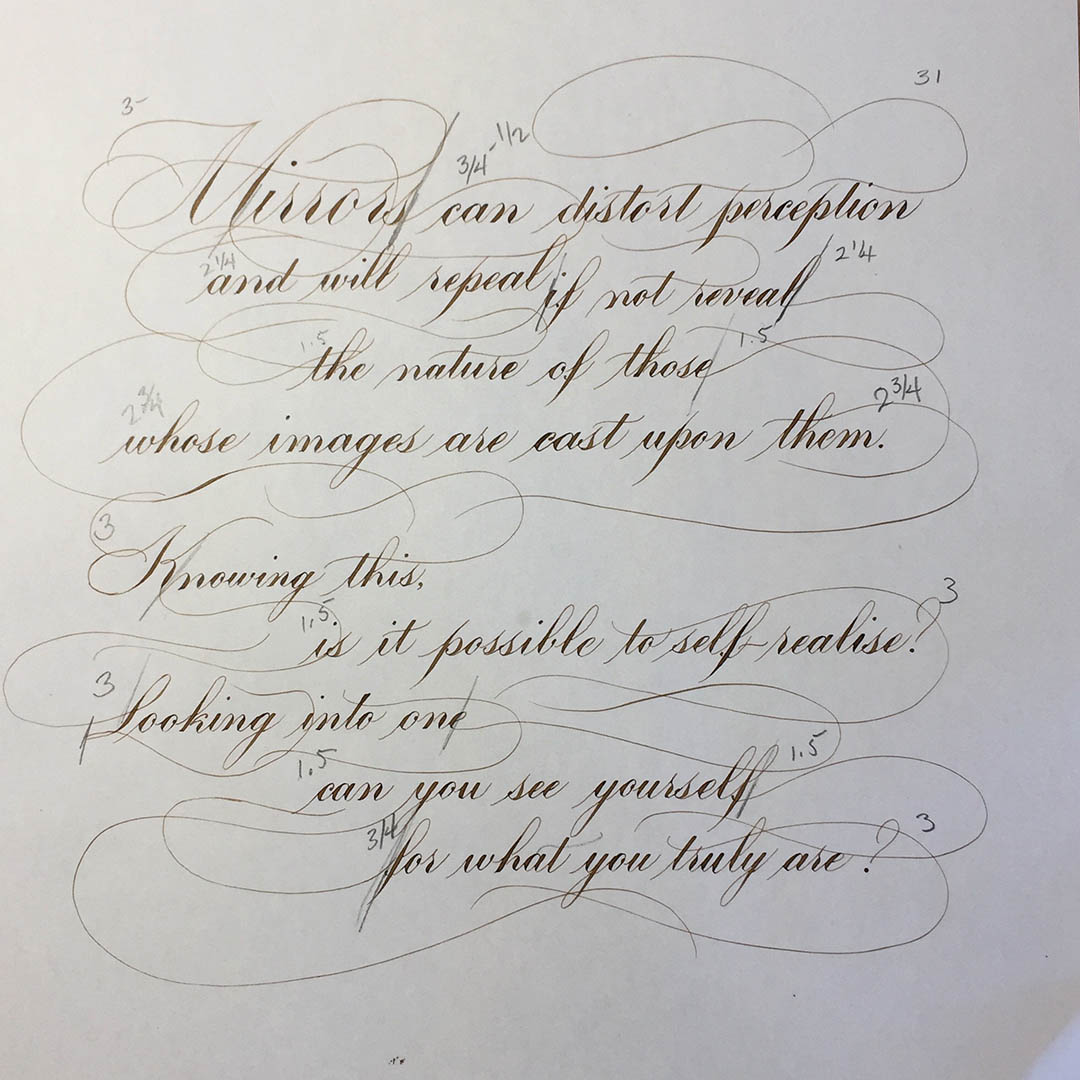 3- 31
3/4 - 1/2
Mirrors can distort perception
2 1/4 and will repeal if not reveal 2 1/4
1.5 the nature of those 1.5
2 3/4 whose images are cast upon them. 2 3/4
3 Knowing this,
1.5 is it possible to self-realise? 3
3 Looking into one
1.5 can you see yourself 1.5
3/4 for what you truly are? 3